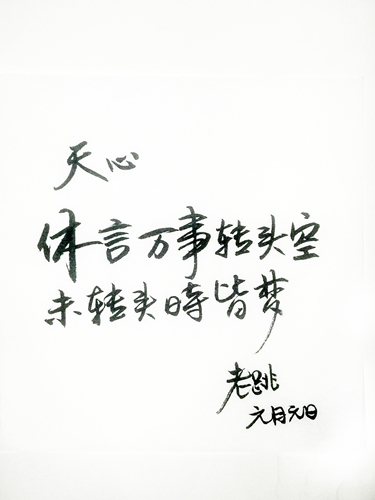 天心
休言万事转头空
未转头时皆梦
老跳
六月六日